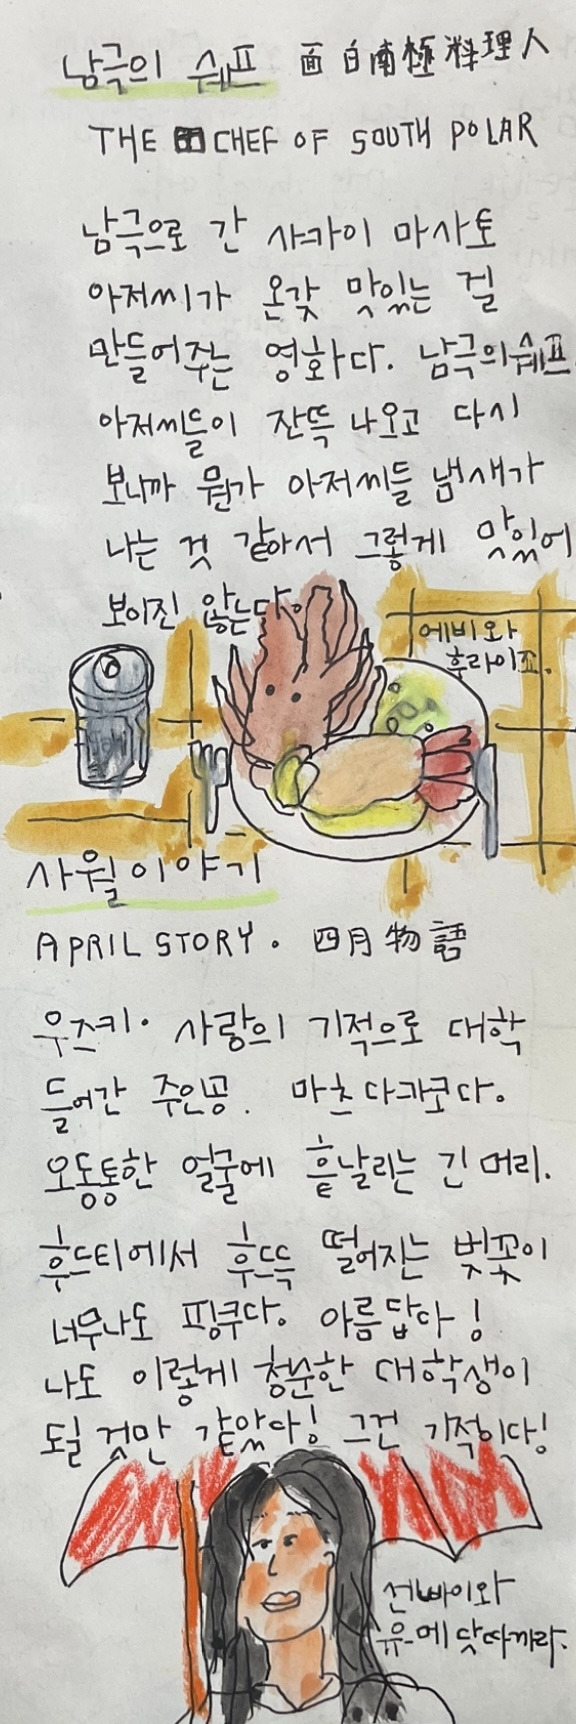 남극의 쉐프 面白南極料理人
THE CHEF OF SOUTH POLAR
남극으로 간 사카이 마사토
아저씨가 온갖 맛있는 걸
만들어주는 영화다. 남극의쉐프.
아저씨들이 잔뜩 나오고 다시
보니까 뭔가 아저씨들 냄새가
나는 것 같아서 그렇게 맛있어
보이진 않는다.
에비와
후라이죠.
사월이야기
APRIL STORY. 四月物語
우즈키. 사랑의 기적으로 대학
들어간 주인공. 마츠다카코다.
오동통한 얼굴에 흩날리는 긴 머리.
후드티에서 후두뚝 떨어지는 벚꽃이
너무나도 핑쿠다. 아름답다!
나도 이렇게 청순한 대학생이
될 것만 같았다! 그건 기적이다!
센빠이와
유-메닷따까라.